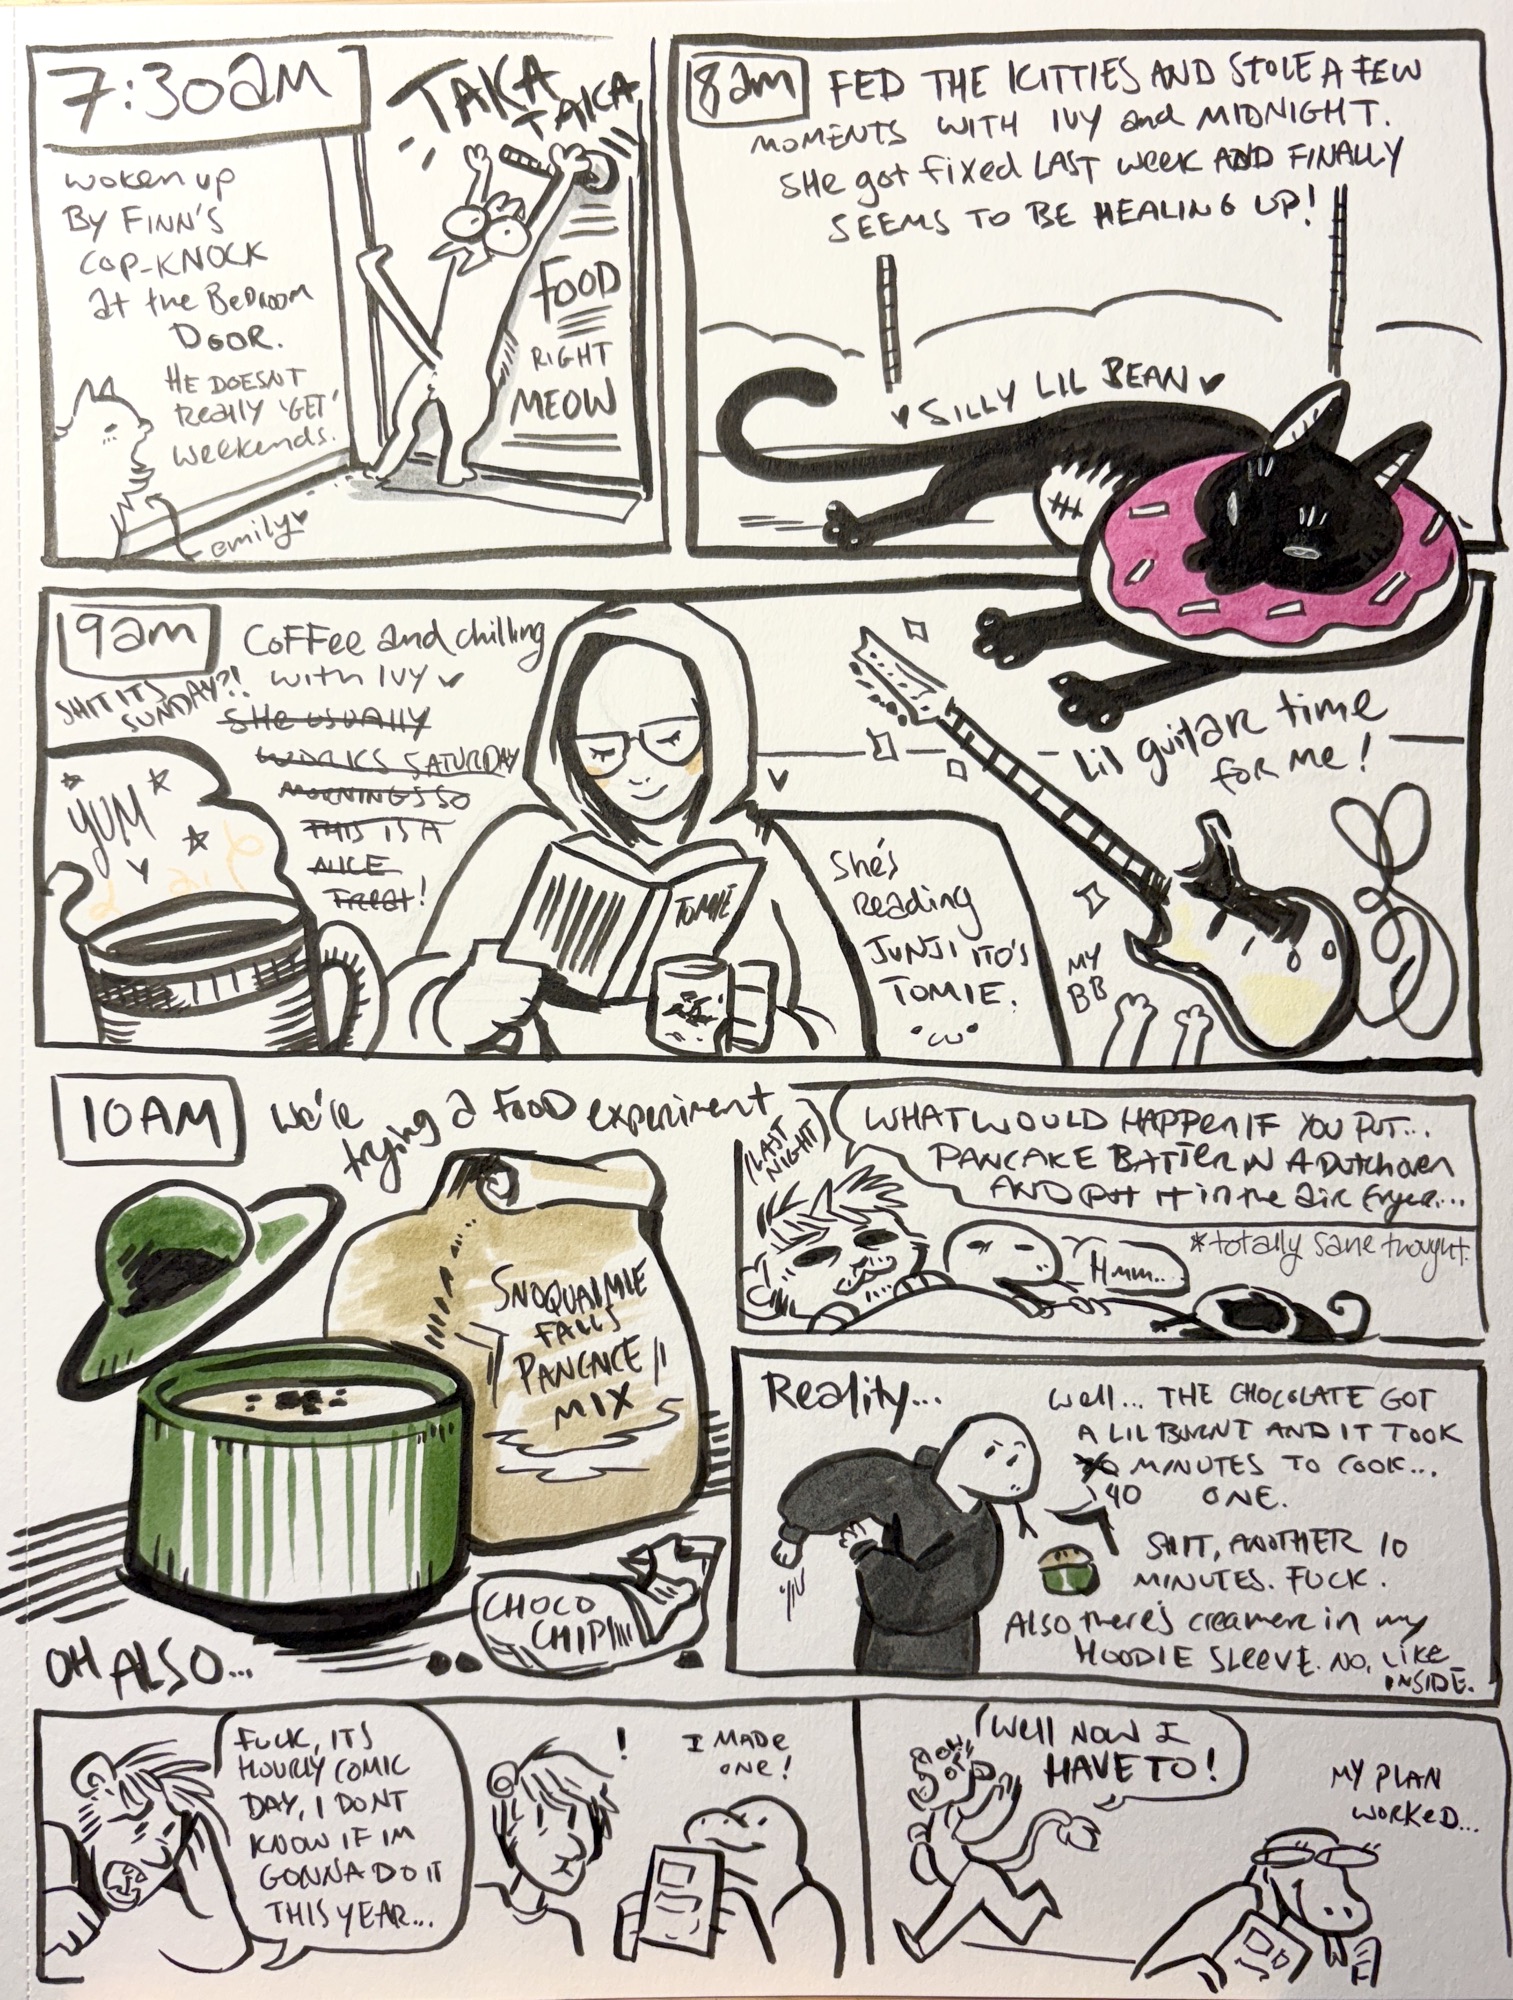 7:30am
TAKA
TAKA
woken up
BY FINN'S
COP-KNOCK
at the Bedroom
DOOR.
HE DOESNT
really 'GET'
weekends.
emily
FOOD
RIGHT
MEOW
8am
FED THE KITTIES AND STOLE A FEW
MOMENTS WITH IVY and MIDNIGHT.
SHe got fixed LAST week AND FINALLY
SEEMS TO BE HEALING UP!
SILLY LIL BEAN
9am
COFFee and chilling
with IVY
SHIT ITS
SUNDAY?!
SHe USUALLY
WORKS SATURDAY
MORNINGS SO
THIS IS A
NICE
TREAT!
YUM
TOMIE
She's
Reading
JUNJI ITO'S
TOMIE.
Lil guitar time
for me!
MY
BB
10AM
We're
trying a FOOD experiment
SNOQUALMIE
FALLS
PANCAKE
MIX
CHOCO
CHIP
OH ALSO...
(LAST
NIGHT)
WHAT WOULD HAPPEN IF YOU PUT...
PANCAKE BATTER IN A Dutch oven
AND put it in the air fryer...
*totally sane thought.
Hmm..
Reality...
Well... THE CHOCOLATE GOT
A LIL BURNT AND IT TOOK
MINUTES TO COOK...
40 ONE.
SHIT, ANOTHER 10
MINUTES. FUCK.
Also there's creamer in my
HOODIE SLEEVE. NO, LIKE
INSIDE.
FUCK, ITS
HOURLY COMIC
DAY, I DONT
KNOW IF IM
GONNA DO IT
THIS YEAR...
!
I MADE
ONE!
Well NOW I
HAVE TO!
MY PLAN
WORKED...